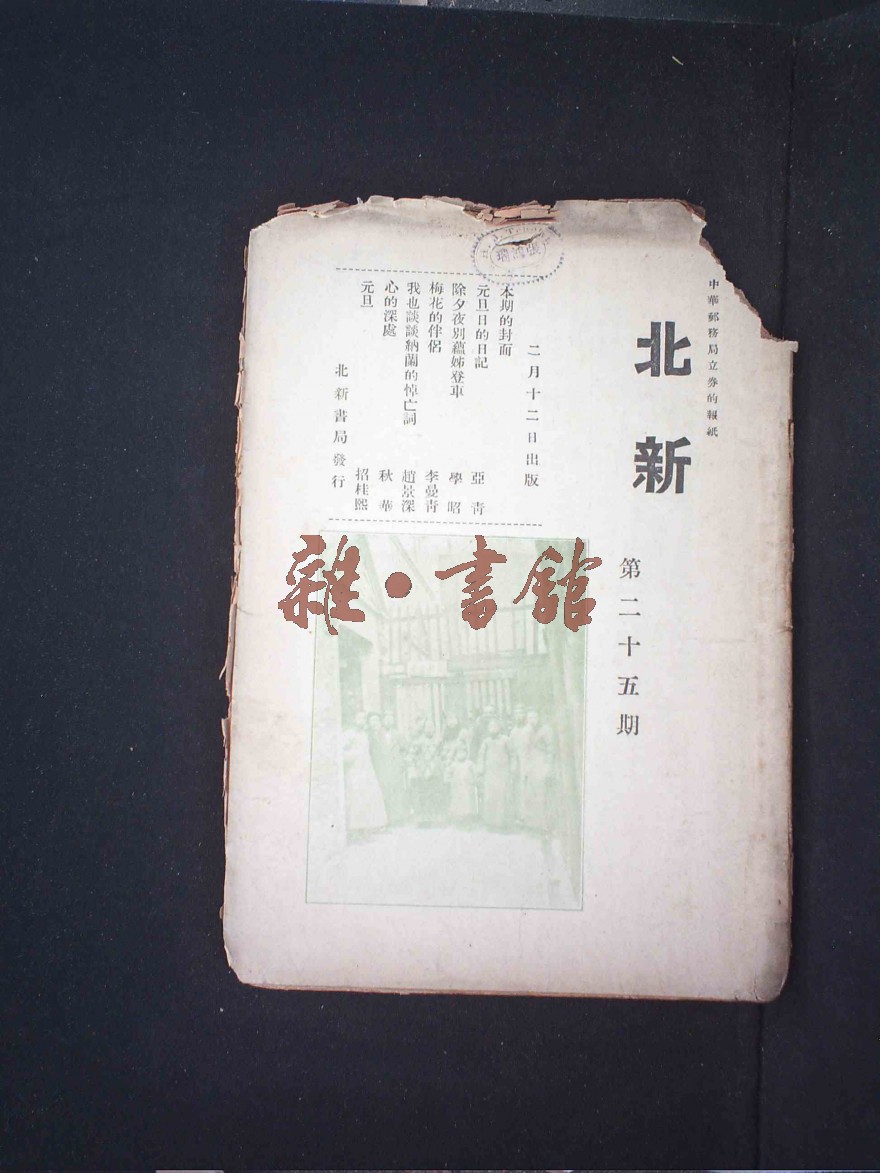 中華郵務局立券的報紙
北新
第二十五期
二月十二日出版
本期的封面
元旦日的日記 亞青
除夕夜別蘊姊登車 學昭
梅花的伴侶 李曼青
我也談談納蘭的悼亡詞 趙景深
心的深處 秋華
元旦 招桂熙
北新書局發行
雜·書館